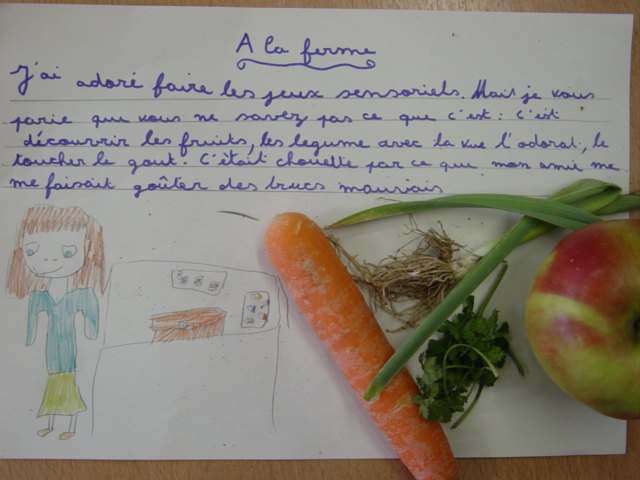 A la ferme
J'ai adoré faire les jeux sensoriels. Mais je vous
parie que vous ne savez pas ce que c'est : C'est
découvrir les fruits, les legume avec la vue l'odorat, le
toucher le gout. C'était chouette par ce que mon amie me
me faisait goûter des trucs mauvais